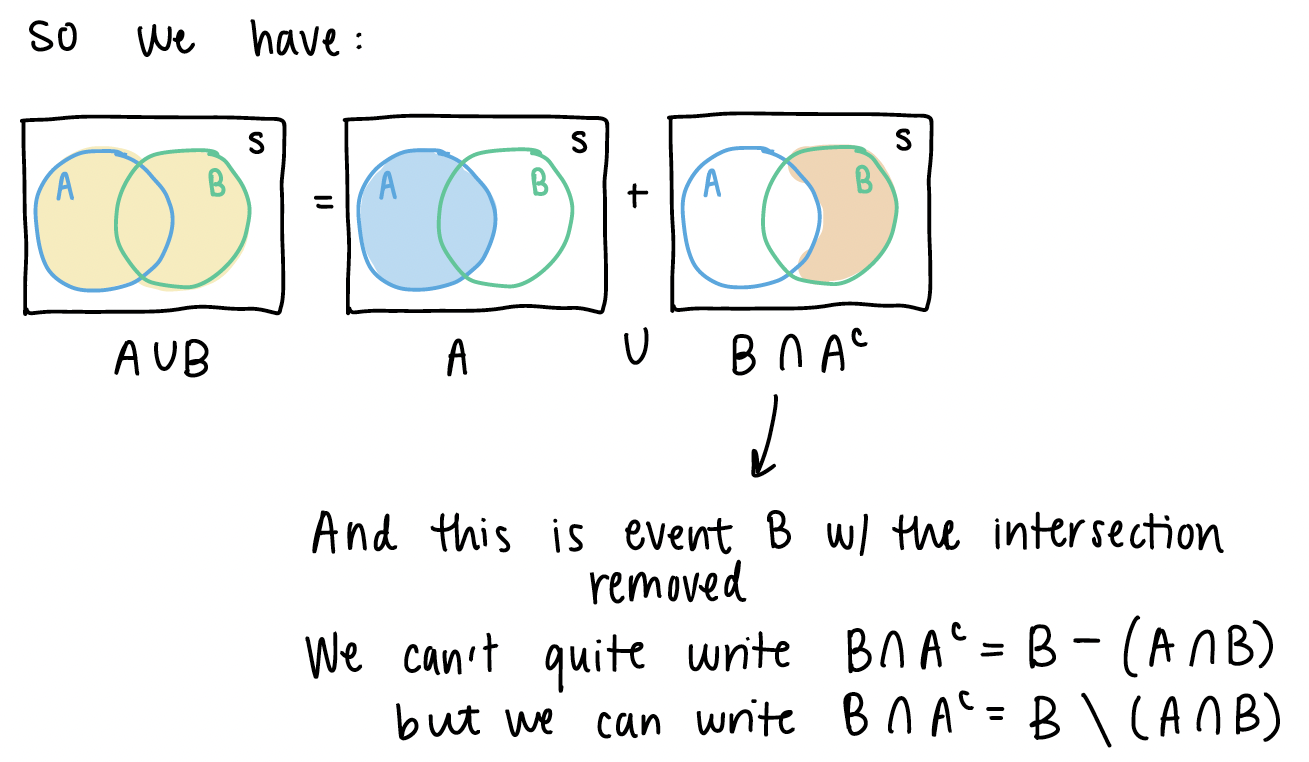 So we have:
S
A B
=
S
A B
+
S
A B
A ∪ B
A
∪
B ∩ Aᶜ
And this is event B w/ the intersection
removed
We can't quite write B ∩ Aᶜ = B - (A ∩ B)
but we can write B ∩ Aᶜ = B \ (A ∩ B)